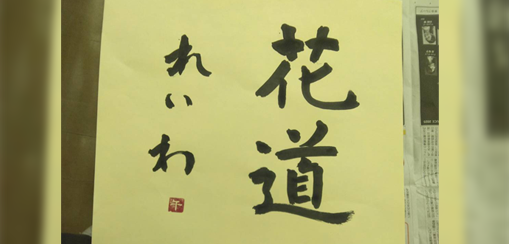 花道
れいわ